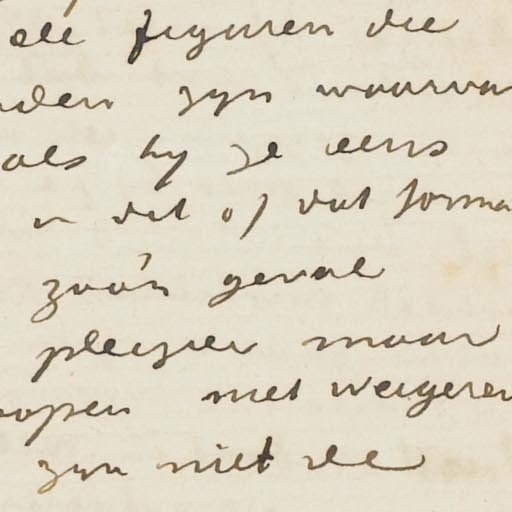 de figuren die
den zyn waarva
als hy ze eens
in dit of dat forma
zoo'n geval
pleizier maar
open niet weigeren
zyn niet de